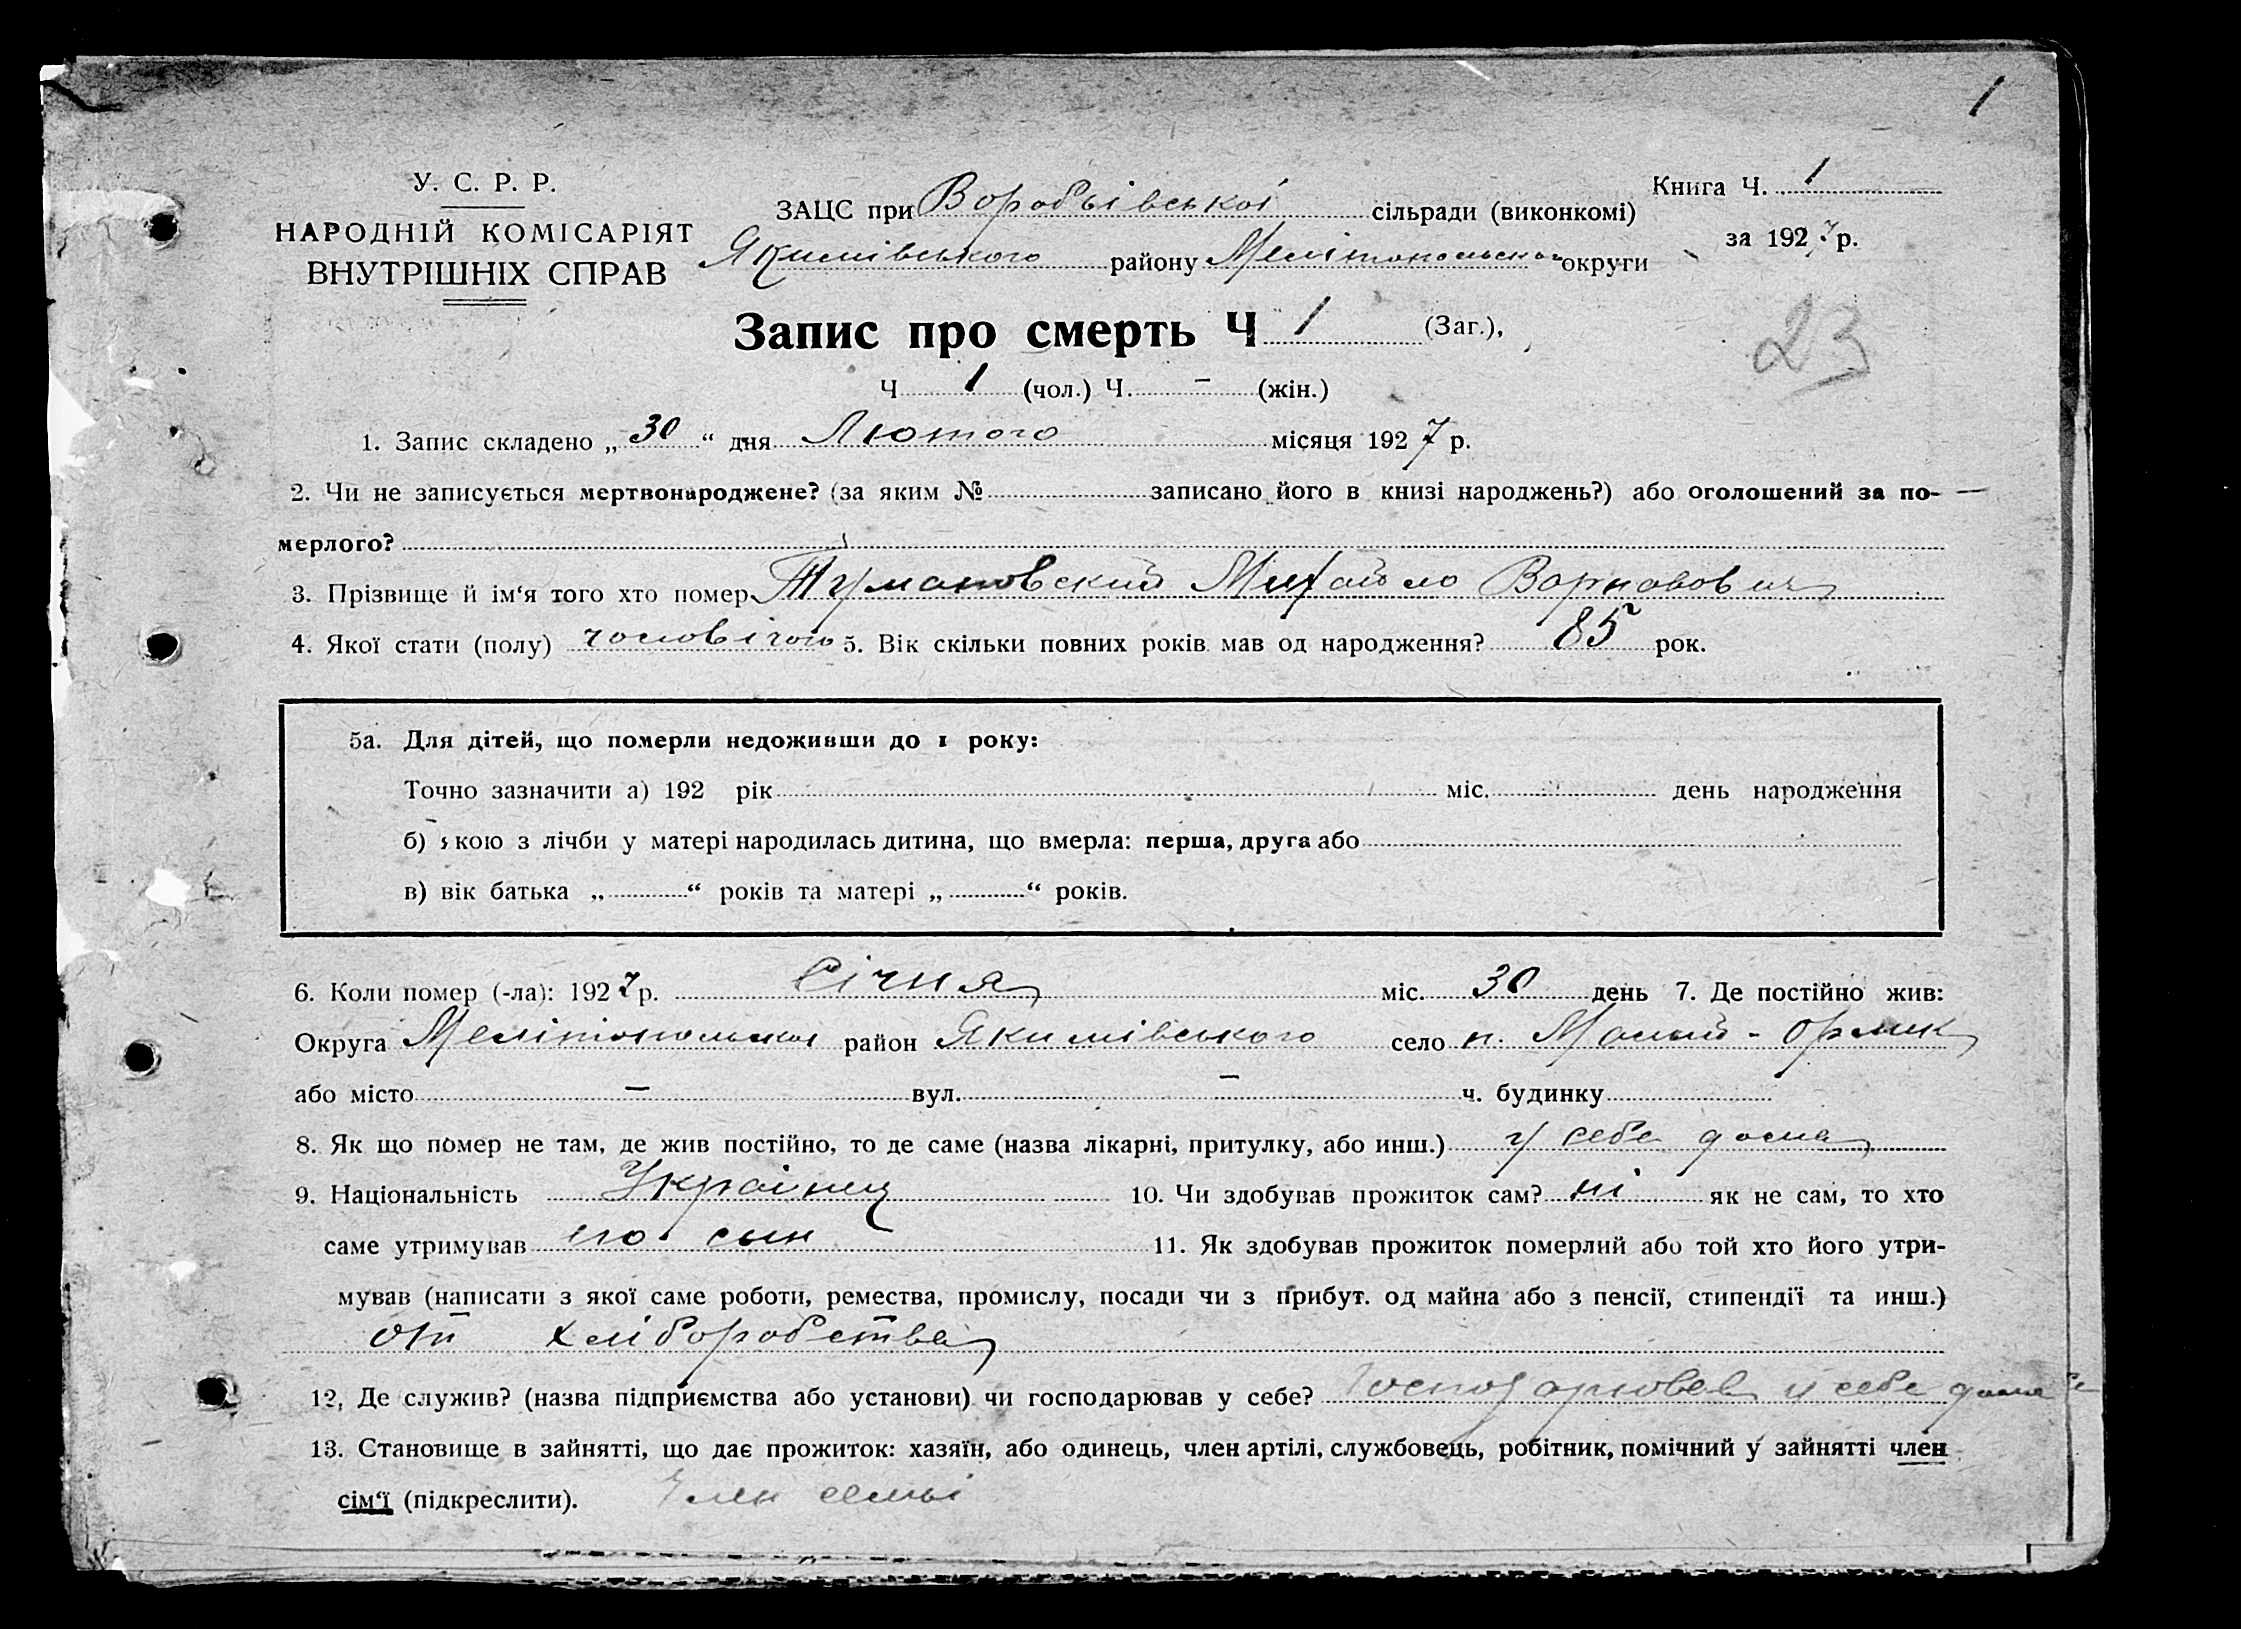 1
У. С. Р. Р.
НАРОДНІЙ КОМІСАРІЯТ
ВНУТРІШНІХ СПРАВ
ЗАЦС при Воробьівськоі сільради (виконкомі)
Якимівського району Мелітопольськоі округи
Книга Ч. 1
за 1927 р.
23
Запис про смерть Ч 1 (Заг.),
Ч 1 (чол.) Ч. – (жін.)
1. Запис складено „30“ дня Лютого місяця 1927 р.
2. Чи не записується мертвонароджене? (за яким № записано його в книзі народжень?) або оголошений за по- —
мерлого?
3. Прізвище й ім‘я того хто помер Тумановский Михайло Варнавович
4. Якої стати (полу) чоловічого 5. Вік скільки повних років мав од народження? 85 рок.
5а. Для дітей, що померли недоживши до 1 року:
Точно зазначити а) 192 рік міс. день народження
б) якою з лічби у матері народилась дитина, що вмерла: перша, друга або
в) вік батька „ “ років та матері „ “ років.
6. Коли помер (-ла): 1927 р. Січня міс. 30 день 7. Де постійно жив:
Округа Мелітопольська район Якимівського село п. Малый-
або місто – вул. – ч. будинку
8. Як що помер не там, де жив постійно, то де саме (назва лікарні, притулку, або инш.) у себе дома
9. Національність Украінец 10. Чи здобував прожиток сам? ні як не сам, то хто
саме утримував его сын 11. Як здобував прожиток померлий або той хто його утри-
мував (написати з якої саме роботи, ремества, промислу, посади чи з прибут. од майна або з пенсії, стипендії та инш.)
от хліборобства
12, Де служив? (назва підприємства або установи) чи господарював у себе? Господарював у себе дома
13. Становище в зайнятті, що дає прожиток: хазяїн, або одинець, член артілі, службовець, робітник, помічний у зайнятті член
сім‘ї (підкреслити). Член семьі